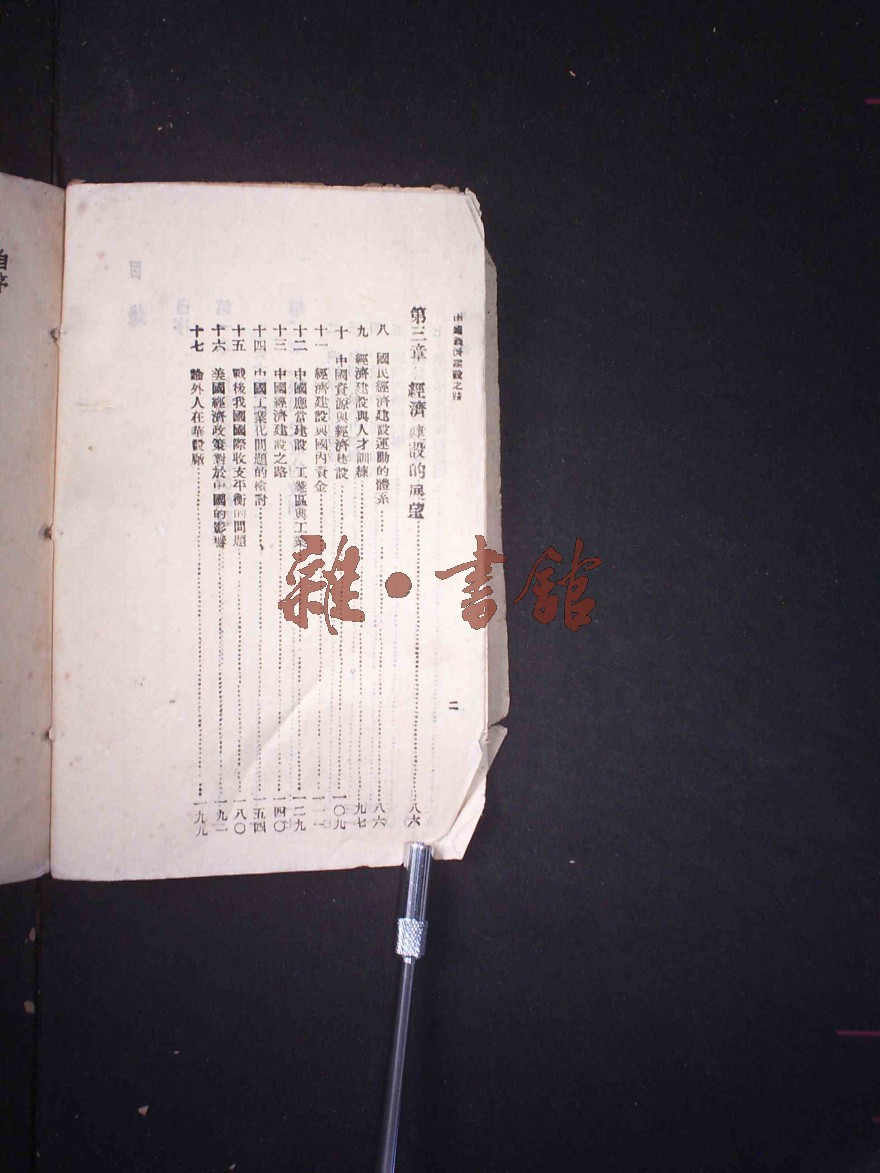 中國經濟建設之路
二
第三章 經濟建設的展望……八六
八 國民經濟建設運動的體系……八六
九 經濟建設與人才訓練……九七
十 中國資源與經濟建設……一〇九
十一 經濟建設與國內資金……一一一
十二 中國應當建設 工業區與工業……一二九
十三 中國經濟建設之路……一四〇
十四 中國工業化問題的檢討……一五四
十五 戰後我國國際收支平衡的問題……一八〇
十六 美國經濟政策對於中國的影響……一九一
十七 論外人在華設廠……一九九
自序
雜·書館